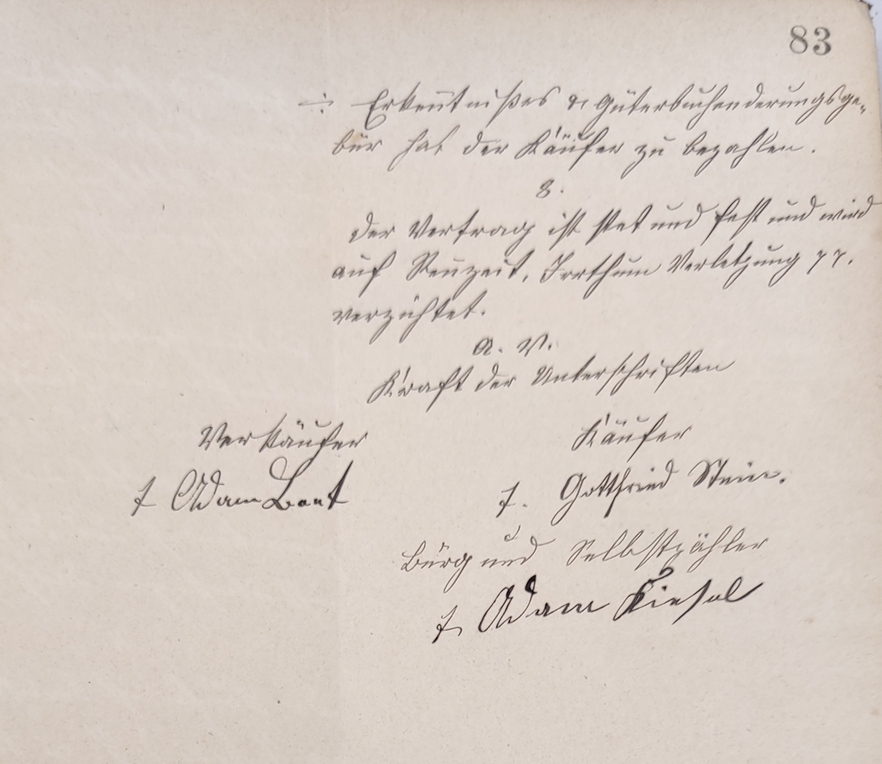 83
÷ Erkentnißes & Güterbuchenderungsge-
bür hat der Käufer zu bezahlen.
8.
Der Vertrag ist stet und fest und wird
auf Reuzeit, Irrthum Verletzung
verzichtet.
A. V.
Kraft der Unterschriften
Verkäufer
Käufer
t Adam
t. Gottfried Stein.
Bürg und Selbstzähler
t Adam Kiesel